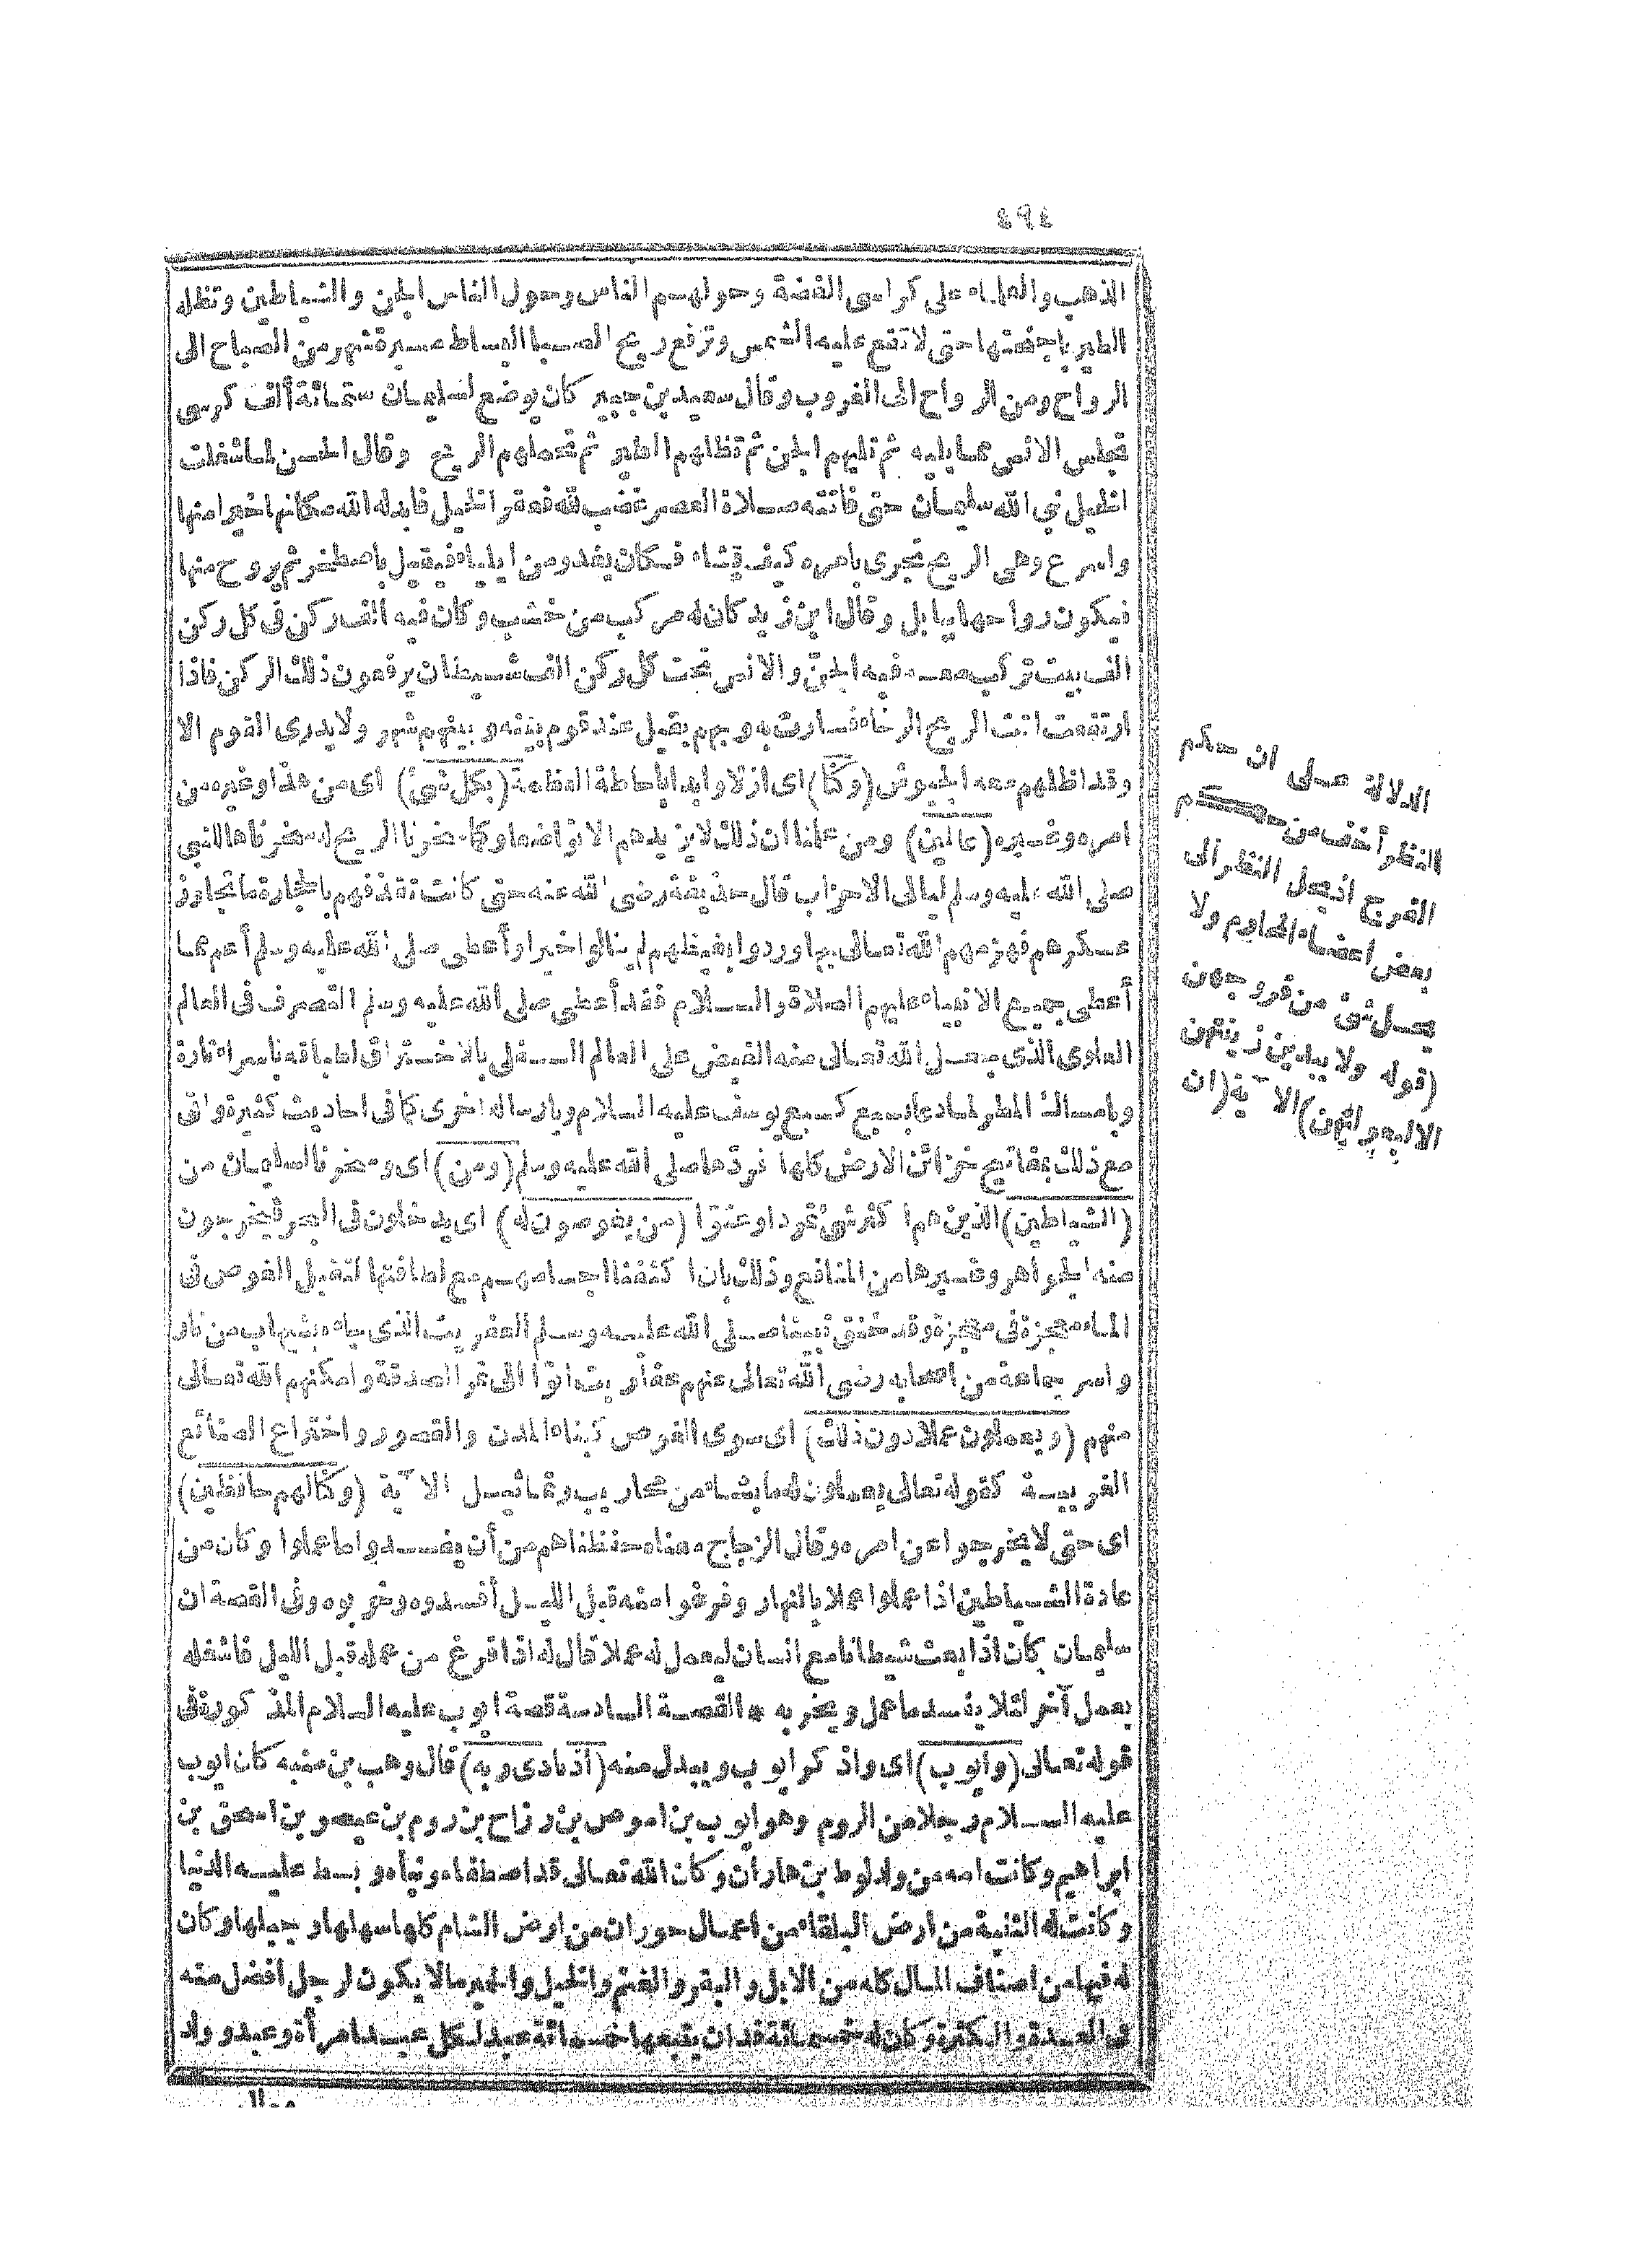 ٤٩٤
الذهب والعلماء على كراسى الفضة وحولهم الناس وحول الناس الجن والشياطين وتظله
الطير باجنحتها حتى لا تقع عليه الشمس وترفع ريح الصبا البساط مسيرة شهر من الصباح الى
الرواح ومن الرواح الى الغروب وقال سعيد بن جبير كان يوضع لسليمان ستمائة ألف كرسى
فيجلس الانس مما يليه ثم تليهم الجن ثم تظلهم الطير ثم تحملهم الريح وقال الحسن لما شغلت
الخيل نبى الله سليمان حتى فاتته صلاة العصر غضب لله فعقر الخيل فابدله الله مكانها خيرا منها
واسرع وهى الريح تجرى بامره كيف يشاء فكان يغدو من ايلياء فيقيل باصطخر ثم يروح منها
فيكون رواحها ببابل وقال ابن زيد كان له مركب من خشب وكان فيه ألف ركن فى كل ركن
الف بيت تركب معه فيه الجن والانس تحت كل ركن الف شيطان يرفعون ذلك الركن فاذا
ارتفعت اتت الريح الرخاء فسارت به وبهم يقيل عند قوم بينه وبينهم شهر ولا يدرى القوم الا
وقد اظلهم معه الجيوش (وكنا) اى ازلا وابدا باحاطة العظمة (بكل شئ) اى من هذا وغيره من
امره وغيره (عالمين) ومن علمنا ان ذلك لا يزيدهم الا تواضعا وكما سخرنا الريح له سخرناها للنبى
صلى الله عليه وسلم ليالى الاحزاب قال حذيفة رضى الله عنه حتى كانت تقذفهم بالحجارة ما تجاوز
عسكرهم فهزمهم الله تعالى بها وردوا بغيظهم لم ينالوا خيرا وأعطى صلى الله عليه وسلم أعم مما
أعطى جميع الانبياء عليهم الصلاة والسلام فقد أعطى صلى الله عليه وسلم التصرف فى العالم
العلوى الذى جعل الله تعالى منه الفيض على العالم السفلى بالاختراق لطباقه بالاسراء تارة
وبامساك المطر لما دعا بسبع كسبع يوسف عليه السلام وبارساله اخرى كما فى احاديث كثيرة واتى
مع ذلك بمفاتيح خزائن الارض كلها فردها صلى الله عليه وسلم (ومن) اى وسخرنا لسليمان من
(الشياطين) الذين هم اكثر شئ تمردا وعتوا (من يغوصون له) اى يدخلون فى البحر فيخرجون
منه الجواهر وغيرها من المنافع وذلك بان اكثفنا اجسامهم مع لطافتها لتقبل الغوص فى
الماء معجزة فى معجزة وقد خنق نبينا صلى الله عليه وسلم العفريت الذى جاءه بشهاب من نار
واسر جماعة من اصحابه رضى الله تعالى عنهم عفاريت اتوا الى تمر الصدقة وامكنهم الله تعالى
منهم (ويعملون عملا دون ذلك) اى سوى الغوص كبناء المدن والقصور واختراع الصنائع
الغريبة كقوله تعالى يعملون له ما يشاء من محاريب وتماثيل الآية (وكنا لهم حافظين)
اى حتى لا يخرجوا عن امره وقال الزجاج معناه حفظناهم من أن يفسدوا ما عملوا وكان من
عادة الشياطين اذا عملوا عملا بالنهار وفرغوا منه قبل الليل أفسدوه وخربوه وفى القصة ان
سليمان كان اذا بعث شيطانا مع انسان ليعمل له عملا قال له اذا فرغ من عمله قبل الليل فاشغله
بعمل آخر لئلا يفسد ما عمل ويخربه * القصة السادسة قصة ايوب عليه السلام المذكورة فى
قوله تعالى (وايوب) اى واذكر ايوب ويبدل منه (اذ نادى ربه) قال وهب بن منبه كان ايوب
عليه السلام رجلا من الروم وهو ايوب بن اموص بن رزاح بن روم بن عيص بن اسحق بن
ابراهيم وكانت امه من ولد لوط بن هاران وكان الله تعالى قد اصطفاه ونبأه وبسط عليه الدنيا
وكانت له الثنية من ارض البلقاء من اعمال حوران من ارض الشام كلها سهلها وجبلها وكان
له فيها من اصناف المال كله من الابل والبقر والغنم والخيل والحمير ما لا يكون لرجل أفضل منه
فى العدة والكثرة وكان له خمسمائة فدان يتبعها خمسمائة عبد لكل عبد امرأة وعبد وولد
الدلالة على ان حكم
النظر أخف من حكم
الفرج اذ يحل النظر الى
بعض اعضاء المحارم ولا
يحل شئ من فروجهن
(قوله ولا يبدين زينتهن
الا لبعولتهن) الآية (ان